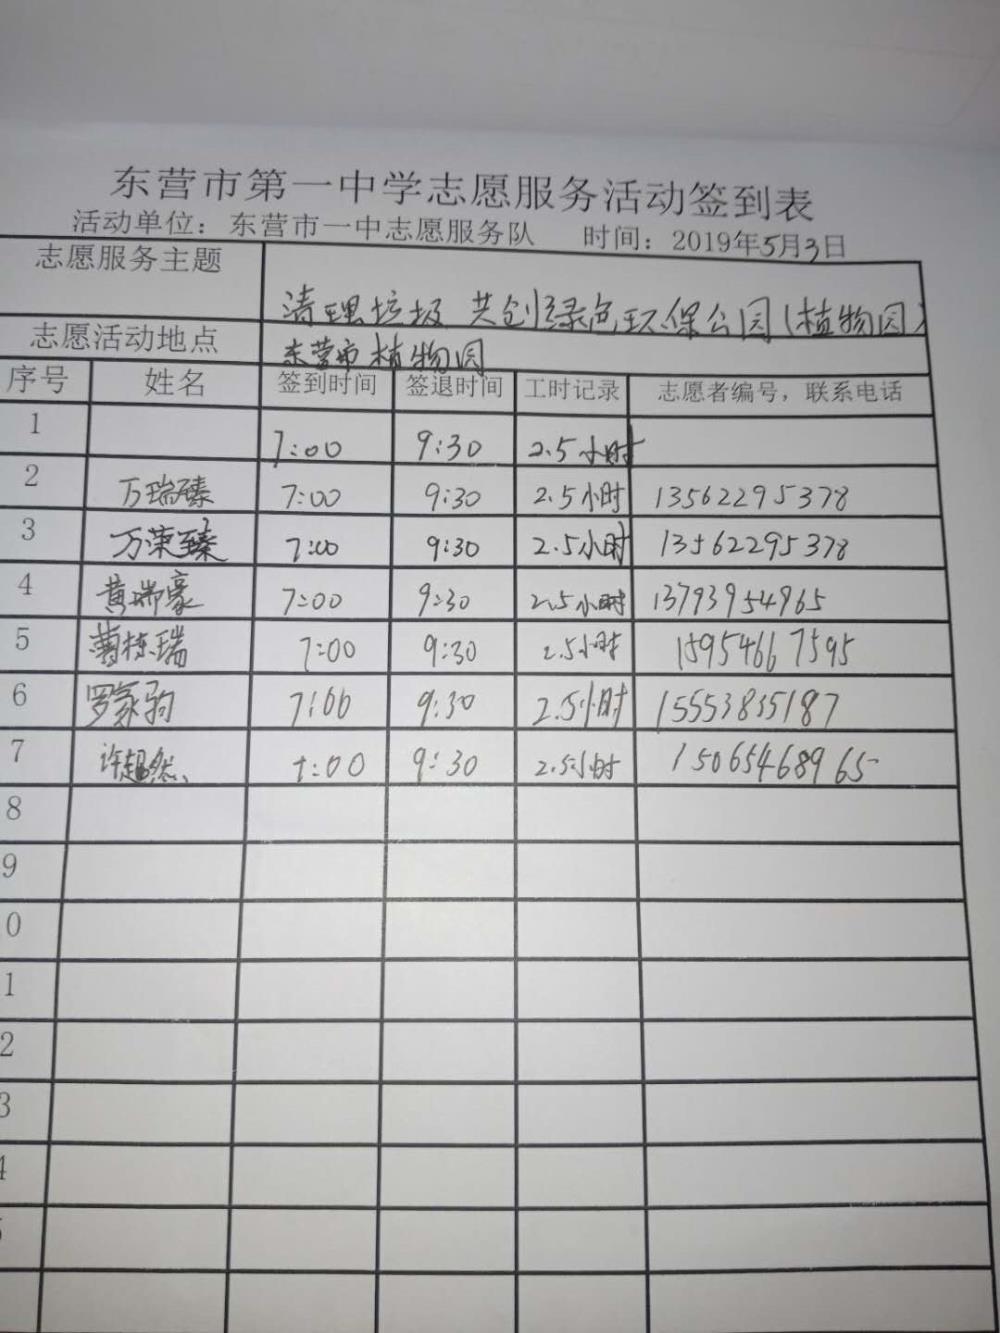 东营市第一中学志愿服务活动签到表
活动单位：东营市一中志愿服务队 时间：2019年5月3日
志愿服务主题 清理垃圾 共创绿色环保公园（植物园）
志愿活动地点 东营市植物园
序号 姓名 签到时间 签退时间 工时记录 志愿者编号，联系电话
1 7:00 9:30 2.5小时
2 万瑞臻 7:00 9:30 2.5小时 13562295378
3 万溁臻 7:00 9:30 2.5小时 13562295378
4 黄瑞豪 7:00 9:30 2.5小时 13793954965
5 曹栋瑞 7:00 9:30 2.5小时 15954667595
6 罗家驹 7:00 9:30 2.5小时 15553835187
7 许超然 7:00 9:30 2.5小时 15065468965
8
9
0
1
2
3
4
5